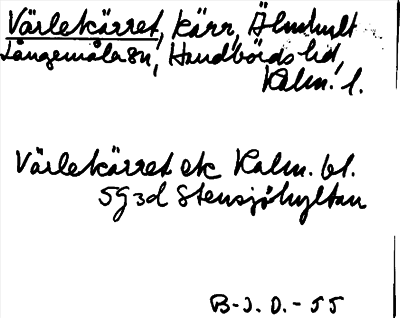 Värlekärret, kärr, Älmhult
Långemåla sn, Handbörds hd,
Kalm. l.
Värlekärret ek Kalm. bl.
5G3d Stensjöhyltan
B-J. O. - 55